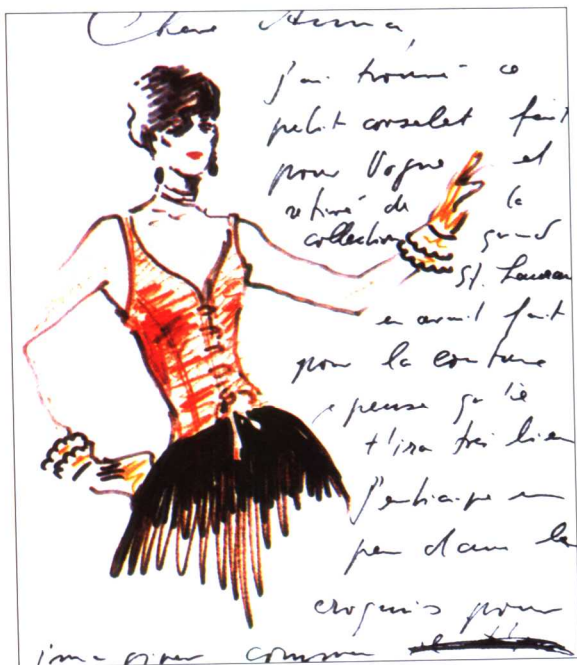 Chere Anna,
j'ai trouvé ce
petit corselet fait
pour Vogue et
retiré de la
collection quand
St. Lauren
en avait fait
pour la couture
pense qu'il
t'ira très bien
J'extrape un
peu dans le
croquis pour
imaginer comme